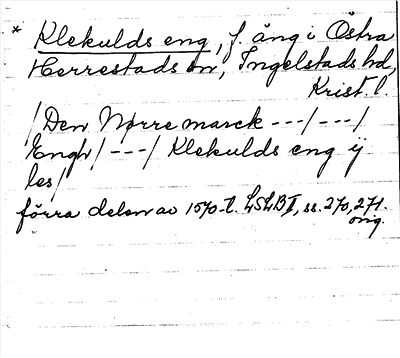 * Klekulds eng, f. äng i Östra
Herrestads sn, Ingelstads hd,
Krist. l.
/Den Nørre marck ---/---/
Engh/---/ Klekulds eng ij
les/
förra delen av 1570-t. LSLB II, ss. 270, 271.
orig.